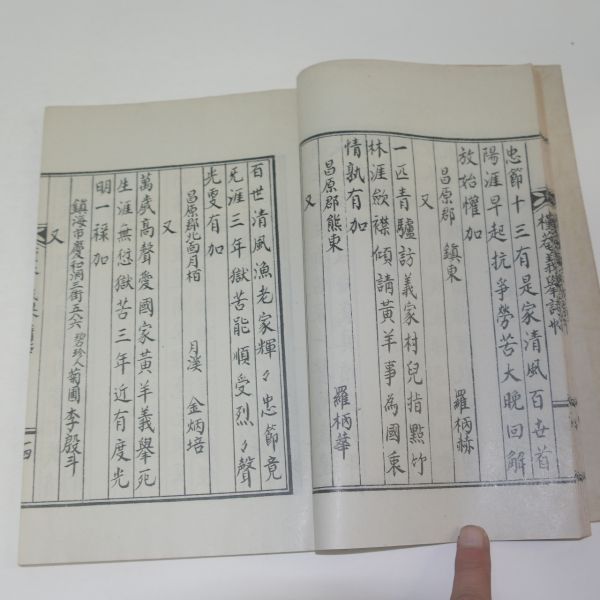 忠節十三有是家清風百世首
陽涯早起抗爭勞苦大晚回解
放始懽加
昌原郡 鎭東 羅柄赫
又
一匹青驢訪義家村兒指點竹
林涯斂襟傾請黃羊事為國東
情孰有加
昌原郡熊東 羅柄華
又
百世清風漁老家輝々忠節竟
无涯三年獄苦能順受烈々聲
光更有加
昌原郡北面月栢 月溪 金炳培
又
萬歲高聲愛國家黃羊義擧死
生涯無愆獄苦三年近有度光
明一祿加
鎭海市慶和洞三街五八六 碧珍人菊圃 李殷斗
又